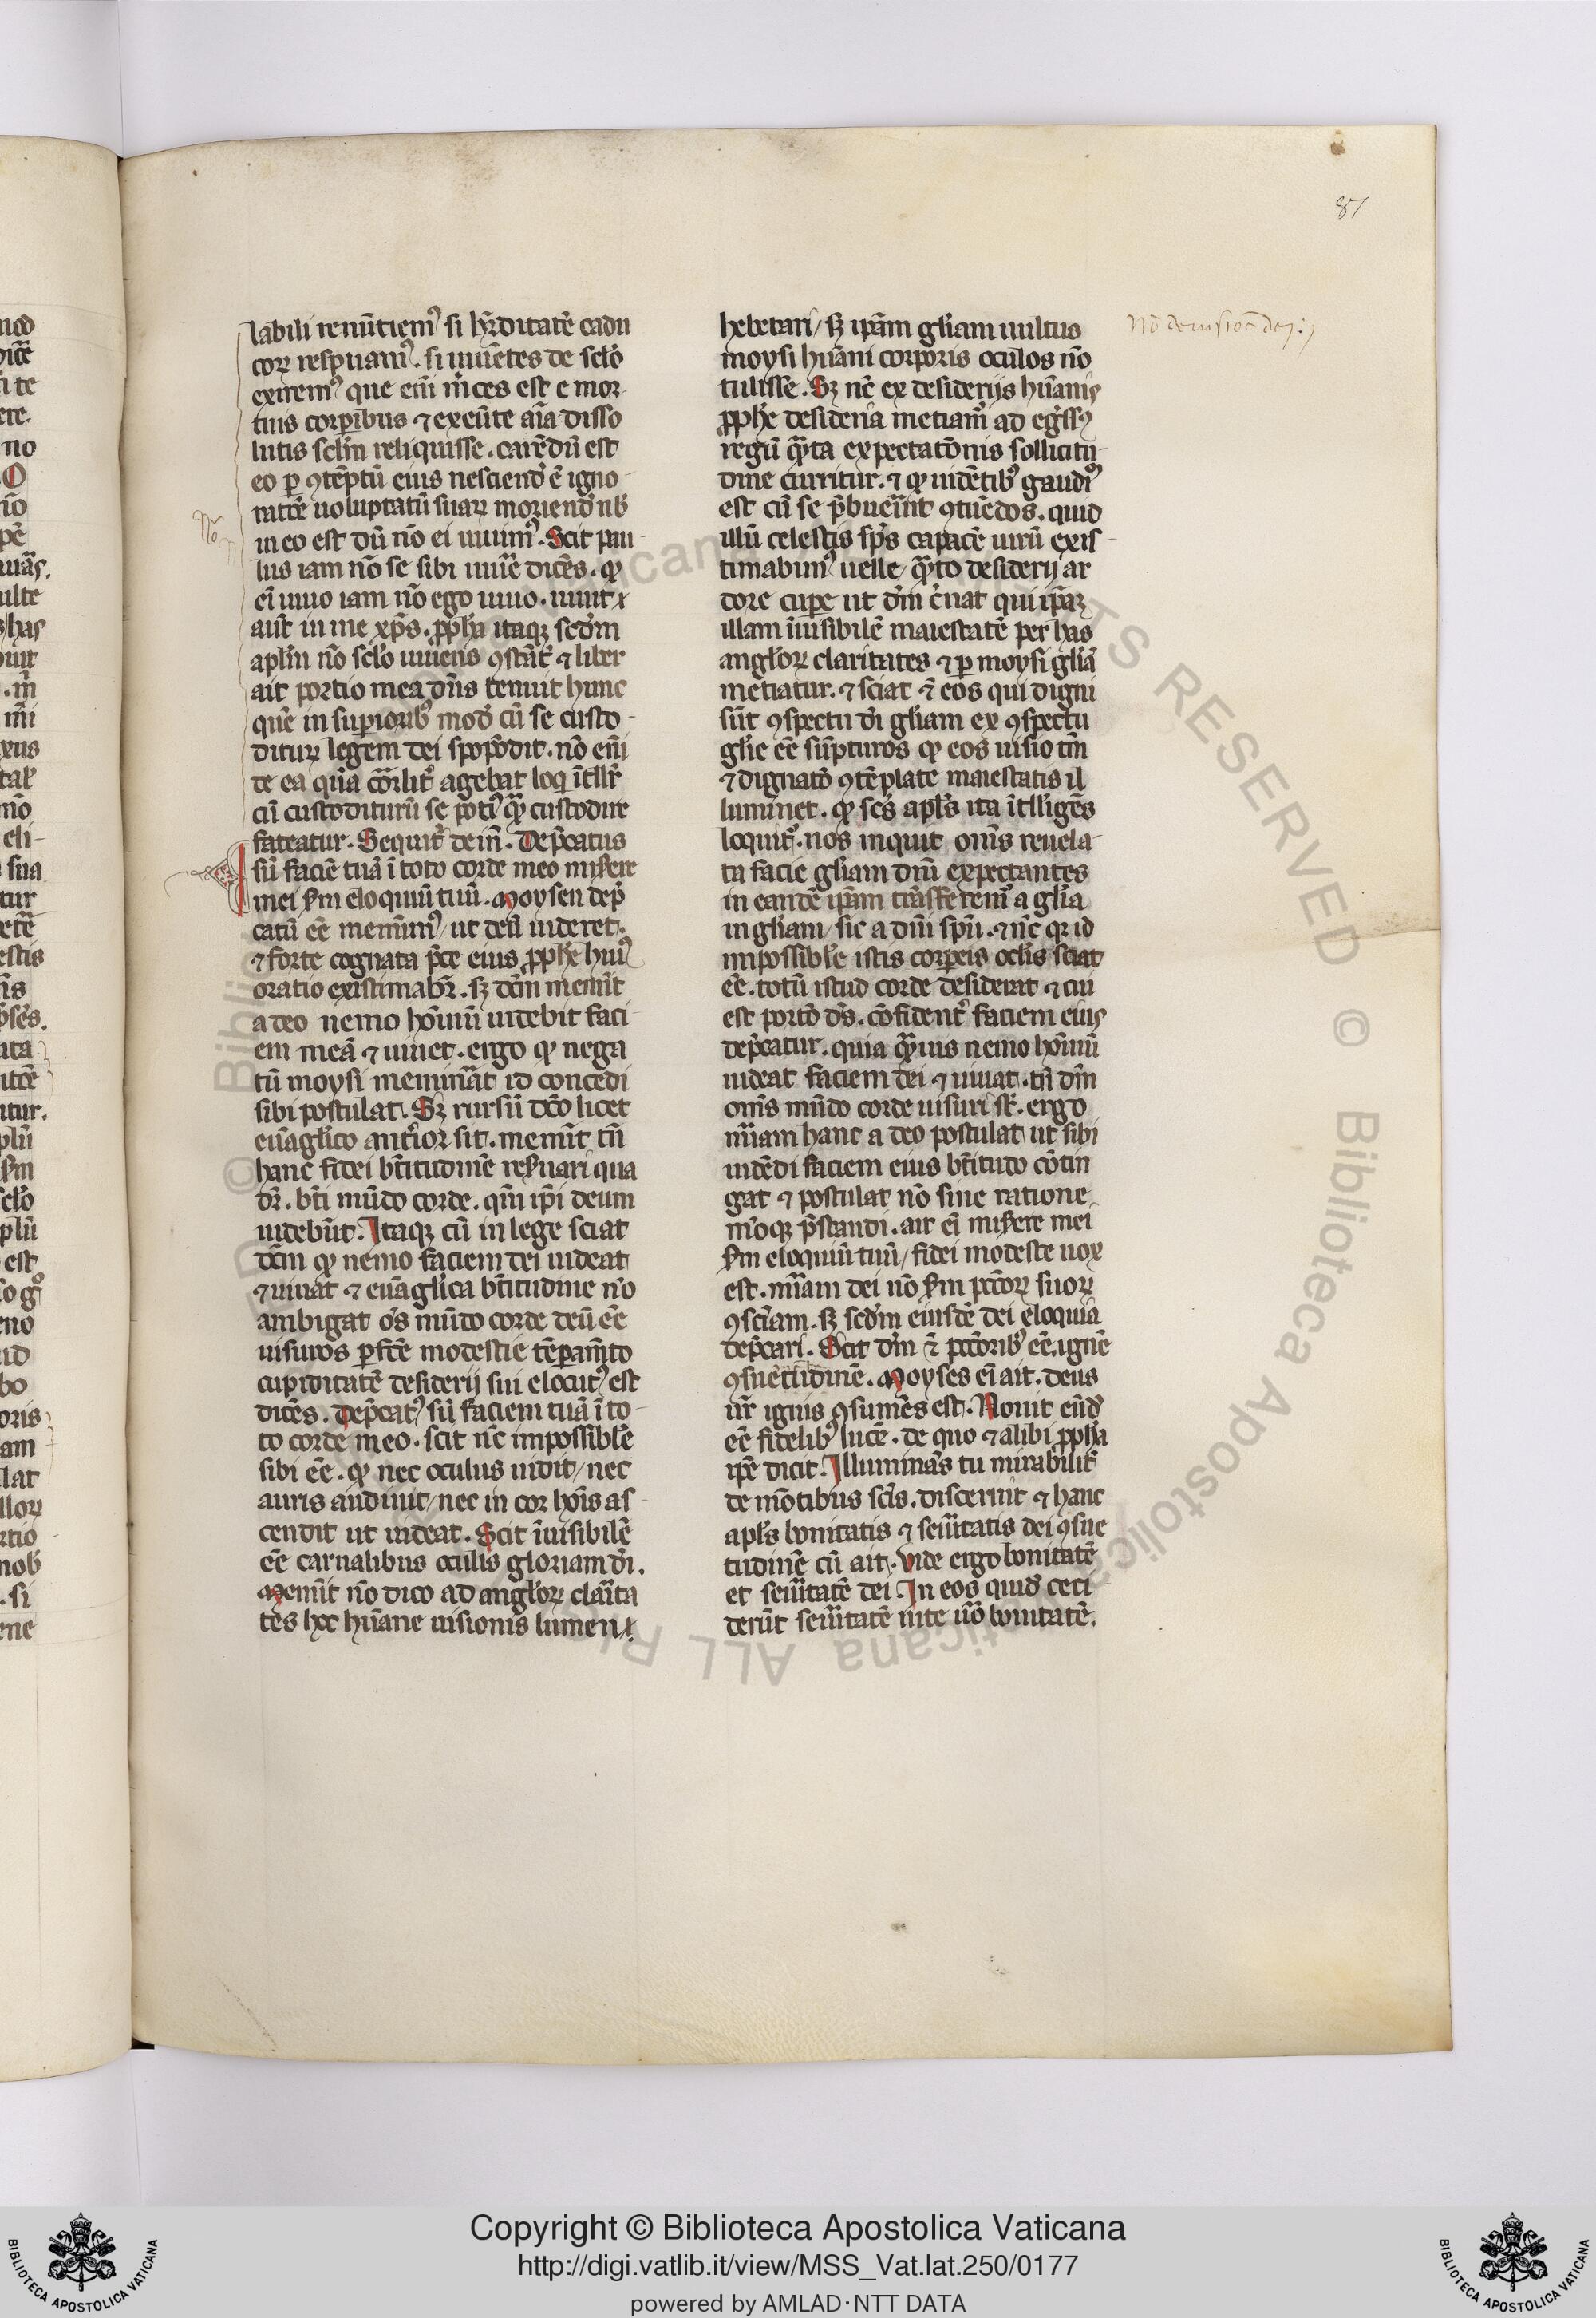 87
labili renūtiem⁹ si hr̄ditatē cadu
coꝝ respuam⁹. si uiuētes de sc̄lo
exirem⁹ que eni m̄ces est e mor-
tuis corꝑibus ⁊ exeūte aīa disso
lutis sc̄lm reliquisse. carēdū est
eo ꝑ ꝯtēptū eius nesciend' ē igno-
ratōe uoluptatū suaꝝ moriend' nb'
in eo est dū nō ei uiuim⁹. Scit pau-
lus iam nō se sibi uiue᷑ dicēs. ꝙ
ei uiuo iam nō ego uiuo. uiuit
aut̄ in me xp̄s. ꝓpha itaqꝫ scd'm
apl'm nō sc̄lo uiuens ꝯstāt᷑ ⁊ liber
ait portio mea dn̄s tenuit hunc
quē in suꝑiorib⁹ mod' cū se custo-
dituꝝ legem dei spopōdit. nō eni
de ea q̄ cōr̄lit᷑ agebat loq̄ ītll'r
cū custoditurū se poti⁹ qᷓ custodire
fateatur. Sequit᷑ dein̄. Dep̄catus
sū faciē tuā ī toto corde meo misere
mei s̄m eloquiū tuū. Moysen dep̄
catū eē memīm⁹/ ut deū uideret.
⁊ forte cognata p̄ce eius ꝓphe hui⁹
oratio existimabr̄. sꝫ dc̄m memīt
a deo nemo hoīnū uidebit faci-
em meā ⁊ uiuet. ergo ꝙ nega
tū moysi meminᷓat id concedi
sibi postulat. Sꝫ rursū dc̄o licet
euāgl'ico ant᷑ior sit. memīt tn̄
hanc fidei bt̄itudinē res̄uari qua
dr̄. bt̄i mūdo corde. qm̄ ip̄i deum
uidebūt. Itaqꝫ cū in lege sciat
dc̄m ꝙ nemo faciem dei uideat
⁊ uiuat ⁊ euāgl'ica bt̄itudine nō
ambigat oēs mūdo corde deū eē
uisuros ꝑfc̄e modestie tēꝑam̄to
cupiditatē desiderij sui elocut⁹ est
dicēs. Dep̄cat⁹ sū faciem tuā ī to-
to corde meo. scit n̄c impossibl'e
sibi eē. ꝙ nec oculus uidit/ nec
auris audiuit/ nec in cor hoīs as-
cendit ut uideat. Scit īuisibilē
eē carnalibus oculis gloriam dī.
Memīt nō dico ad angl'oꝝ clar̄ita
tēs hoc hūane uisionis lumen
hebetari/ sꝫ ip̄am gl'iam uultus
moysi hūani corporis oculos nō
tulisse. Sꝫ nē ex desiderijs hūanis
ꝓphe desideria metiam᷑ ad egr̄ss⁹
regū qᷓta expectatōnis sollicitu-
dine curritur. ⁊ ꝙ uidētib⁹ gaudi⁹
est cū se p̄buerīnt ꝯtuēdos. quid
illū celestis sp̄s capacē uirū exis-
timabim⁹ uelle/ qᷓto desiderij ar
dore cupe ut dm̄ c̄nat qui ip̄aꝝ
illam īuisibilē maiestatē per has
angl'oꝝ claritates ⁊ ꝑ moysi gl'iā
metiatur. ⁊ sciat ⁊̄ eos qui digni
sūt ꝯspectu dī gl'iam ex ꝯspectu
gl'ie eē sūpturos ꝙ eos uisio tm̄
⁊ dignatō ꝯtēplate maiestatis il
luminet. ꝙ sc̄s apl's ita ītll'igēs
loquit᷑. nos inquit om̄s reuela-
ta facie gl'iam dnī expectantes
in eandē ip̄am trāsferem⁹ a gl'ia
in gl'iam/ sic a dnī sp̄u. ⁊ n̄c qꝛ id
impossibl'e istis corꝑeis ocl'is sciat
eē. totū istud corde desiderat ⁊ cui
est portō ds̄. cōfident᷑ faciem eius
dep̄catur. quia qᷓuis nemo hoīnū
uideat faciem dei ⁊ uiuat. tn̄ dm̄
om̄s mūdo corde uisuri st̄. ergo
mīam hanc a deo postulat ut sibi
uidēdi faciem eius bt̄itudo cōtin
gat ⁊ postulat nō sine ratione
moqꝫ p̄standi. ait ei miserere mei
s̄m eloquiū tuū/ fidei modeste uox
est. mīam dei nō s̄m pctōꝝ suoꝝ
ꝯsciam. sꝫ scd'm eiusdē dei eloquia
dep̄cari. Scit dm̄ ⁊̄ pctōrib⁹ eē. ignē
ꝯsuetudinē. Moyses ei ait. deus
ur̄ ignis ꝯsumēs est. Nouit eūd'
eē fidelib⁹ lucē. de quo ⁊ alibi ꝓpha
ip̄e dicit. Illuminās tu mirabilit᷑
de mōtibus sc̄is. discernit ⁊ hanc
apl's bonitatis ⁊ seuītatis dei ꝯsue
tudinē cū ait. Vide ergo bonitatē
et seuītatē dei. In eos quid' ceci-
derūt seuītatē in te u'o bonitatē.
Copyright © Biblioteca Apostolica Vaticana
http://digi.vatlib.it/view/MSS_Vat.lat.250/0177
powered by AMLAD·NTT DATA
BIBLIOTECA APOSTOLICA VATICANA
BIBLIOTECA APOSTOLICA VATICANA